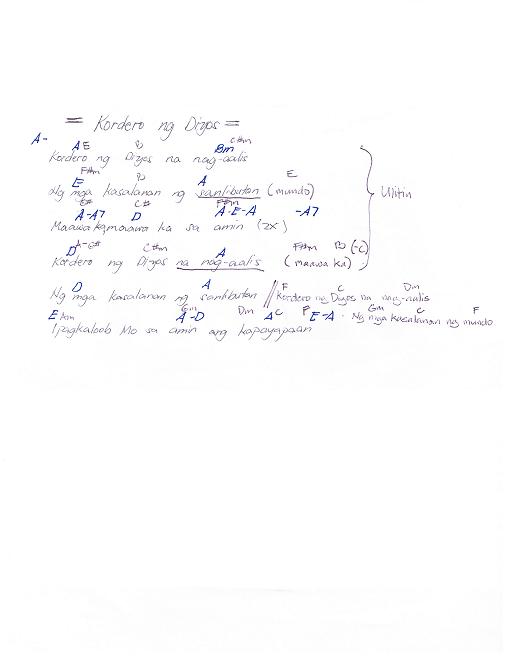 = Kordero ng Diyos =
A-
A E B Bm C#m
Kordero ng Diyos na nag-aalis
F#m
E B A E
Ng mga kasalanan ng sanlibutan (mundo)
Ulitin
E# C# F#m
A-A7 D A-E-A -A7
Maawa ka, maawa ka sa amin (2x)
D A-E# C#m A F#m B (-C)
Kordero ng Diyos na nag-aalis (maawa ka)
D A F C Dm
Ng mga kasalanan ng sanlibutan // Kordero ng Diyos na nag-aalis
E Am Gm A-D Dm A C F E-A Gm C F
Ng mga kasalanan ng mundo
Ipagkaloob Mo sa amin ang kapayapaan